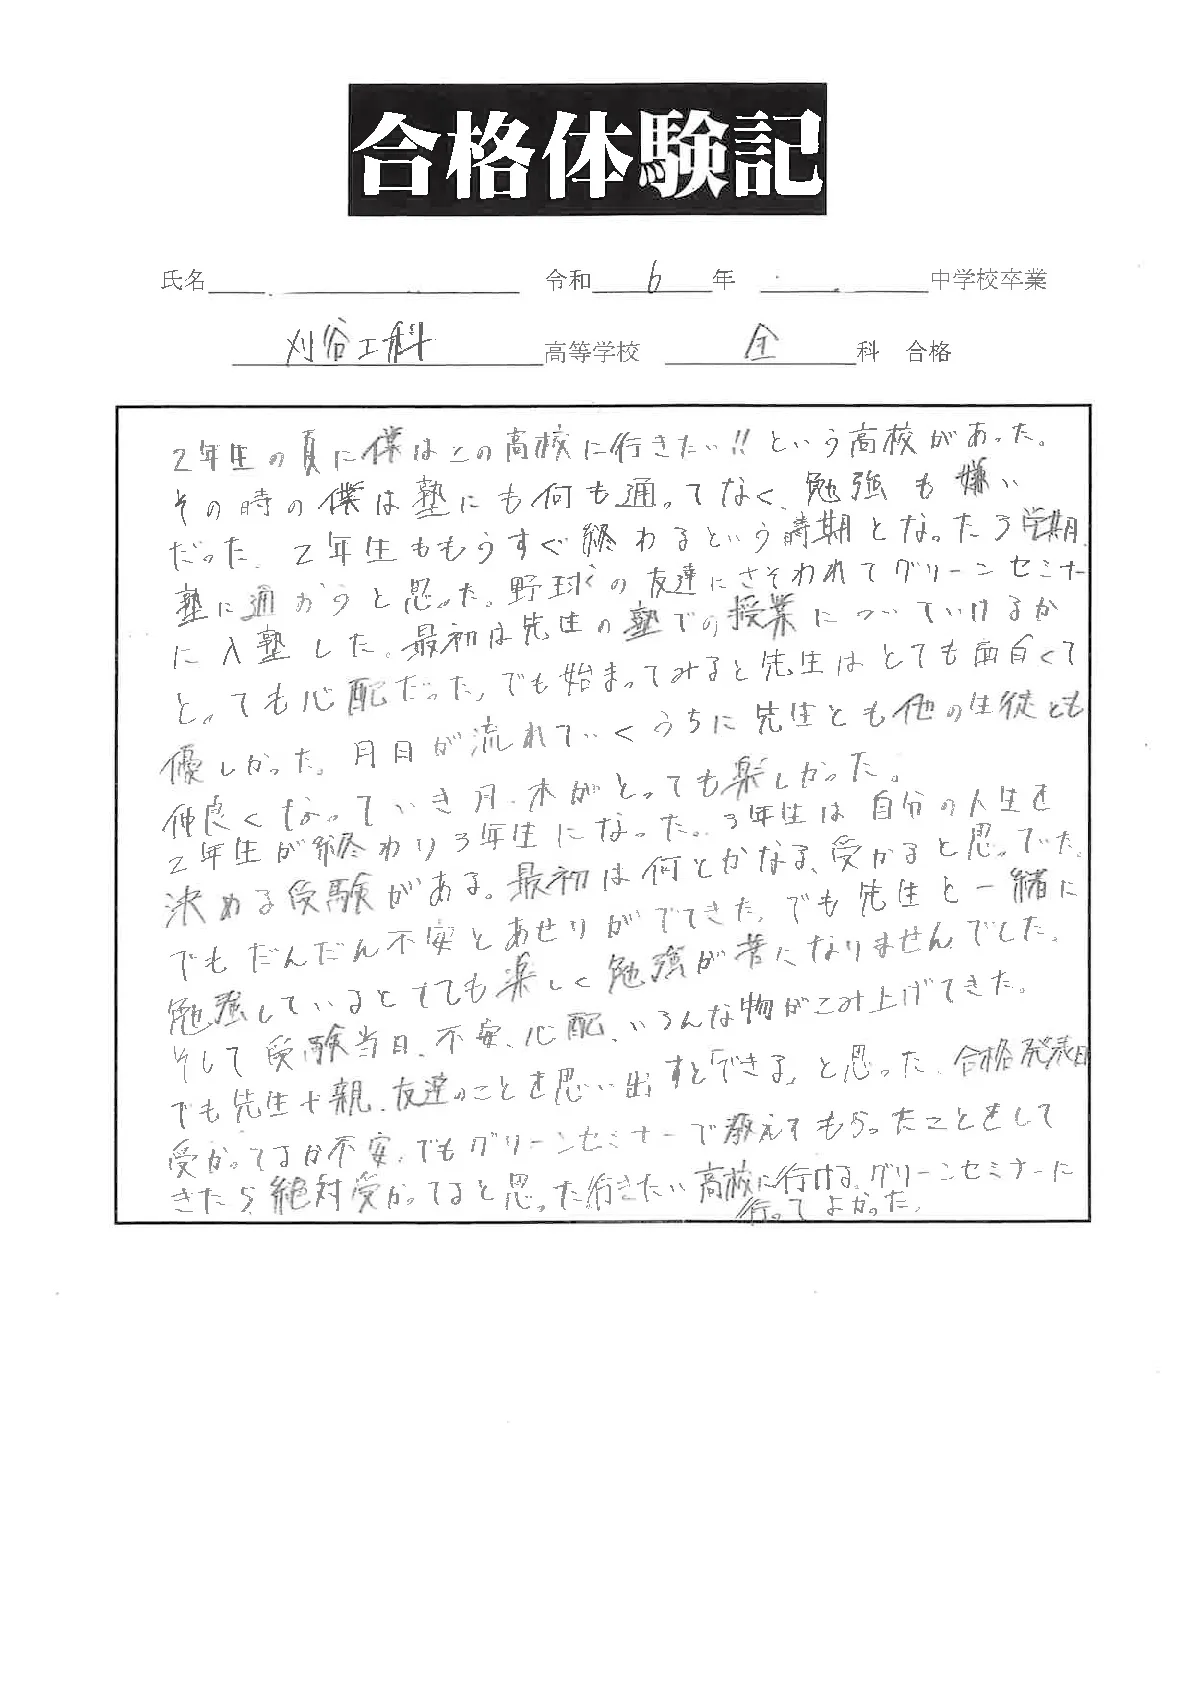 合格体験記
氏名 令和6年 中学校卒業
刈谷工科高等学校 全科 合格
2年生の夏に僕はこの高校に行きたい!!という高校があった。
その時の僕は塾にも何も通ってなく、勉強も嫌い
だった、2年生ももうすぐ終わるという時期となった3学期、
塾に通おうと思った。野球の友達にさそわれてグリーンセミナー
に入塾した。最初は先生の塾での授業についていけるか
とっても心配だった、でも始まってみると先生はとても面白くて
優しかった。月日が流れていくうちに先生とも他の生徒とも
仲良くなっていき月、木がとっても楽しかった。
2年生が終わり3年生になった。3年生は自分の人生を
決める受験がある。最初は何とかなる、受かると思っていた。
でもだんだん不安とあせりがでてきた、でも先生と一緒に
勉強しているととても楽しく勉強が苦になりませんでした。
そして受験当日、不安、心配、いろんな物がこみ上げてきた。
でも先生や親、友達のことを思い出すと「できる」と思った、合格発表日
受かってるか不安、でもグリーンセミナーで教えてもらったことをして
きたら絶対受かってると思った行きたい高校に行ける。グリーンセミナーに
行ってよかった。